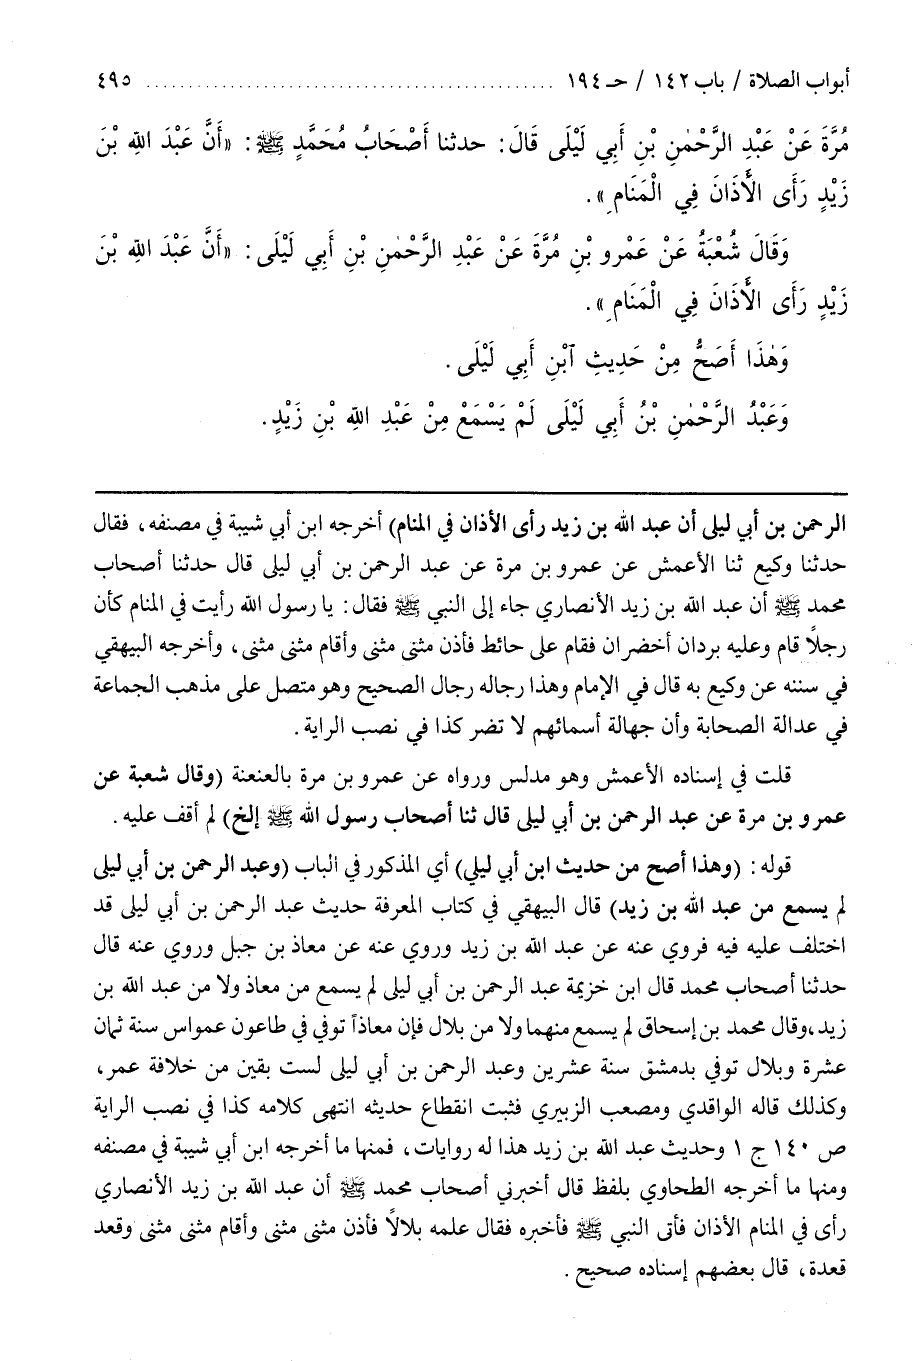 أبواب الصلاة / باب ١٤٢ / حـ ١٩٤ ................................................ ٤٩٥
مُرَّةَ عَنْ عَبْدِ الرَّحْمٰنِ بْنِ أَبِي لَيْلَى قَالَ: حدثنا أَصْحَابُ مُحَمَّدٍ ﷺ: «أَنَّ عَبْدَ اللهِ بْنَ
زَيْدٍ رَأَى الْأَذَانَ فِي الْمَنَامِ».
وَقَالَ شُعْبَةُ عَنْ عَمْرِو بْنِ مُرَّةَ عَنْ عَبْدِ الرَّحْمٰنِ بْنِ أَبِي لَيْلَى: «أَنَّ عَبْدَ اللهِ بْنَ
زَيْدٍ رَأَى الْأَذَانَ فِي الْمَنَامِ».
وَهٰذَا أَصَحُّ مِنْ حَدِيثِ ٱبْنِ أَبِي لَيْلَى.
وَعَبْدُ الرَّحْمٰنِ بْنُ أَبِي لَيْلَى لَمْ يَسْمَعْ مِنْ عَبْدِ اللهِ بْنِ زَيْدٍ.
الرحمن بن أبي ليلى أن عبد الله بن زيد رأى الأذان في المنام) أخرجه ابن أبي شيبة في مصنفه، فقال
حدثنا وكيع ثنا الأعمش عن عمرو بن مرة عن عبد الرحمن بن أبي ليلى قال حدثنا أصحاب
محمد ﷺ أن عبد الله بن زيد الأنصاري جاء إلى النبي ﷺ فقال: يا رسول الله رأيت في المنام كأن
رجلاً قام وعليه بردان أخضران فقام على حائط فأذن مثنى مثنى وأقام مثنى مثنى، وأخرجه البيهقي
في سننه عن وكيع به قال في الإمام وهذا رجاله رجال الصحيح وهو متصل على مذهب الجماعة
في عدالة الصحابة وأن جهالة أسمائهم لا تضر كذا في نصب الراية.
قلت في إسناده الأعمش وهو مدلس ورواه عن عمرو بن مرة بالعنعنة (وقال شعبة عن
عمرو بن مرة عن عبد الرحمن بن أبي ليلى قال ثنا أصحاب رسول الله ﷺ إلخ) لم أقف عليه.
قوله: (وهذا أصح من حديث ابن أبي ليلي) أي المذكور في الباب (وعبد الرحمن بن أبي ليلى
لم يسمع من عبد الله بن زيد) قال البيهقي في كتاب المعرفة حديث عبد الرحمن بن أبي ليلى قد
اختلف عليه فيه فروي عنه عن عبد الله بن زيد وروي عنه عن معاذ بن جبل وروي عنه قال
حدثنا أصحاب محمد قال ابن خزيمة عبد الرحمن بن أبي ليلى لم يسمع من معاذ ولا من عبد الله بن
زيد،وقال محمد بن إسحاق لم يسمع منهما ولا من بلال فإن معاذاً توفي في طاعون عمواس سنة ثمان
عشرة وبلال توفي بدمشق سنة عشرين وعبد الرحمن بن أبي ليلى لست بقين من خلافة عمر،
وكذلك قاله الواقدي ومصعب الزبيري فثبت انقطاع حديثه انتهى كلامه كذا في نصب الراية
ص ١٤٠ ج ١ وحديث عبد الله بن زيد هذا له روايات، فمنها ما أخرجه ابن أبي شيبة في مصنفه
ومنها ما أخرجه الطحاوي بلفظ قال أخبرني أصحاب محمد ﷺ أن عبد الله بن زيد الأنصاري
رأى في المنام الأذان فأتى النبي ﷺ فأخبره فقال علمه بلالاً فأذن مثنى مثنى وأقام مثنى مثنى وقعد
قعدة، قال بعضهم إسناده صحيح.